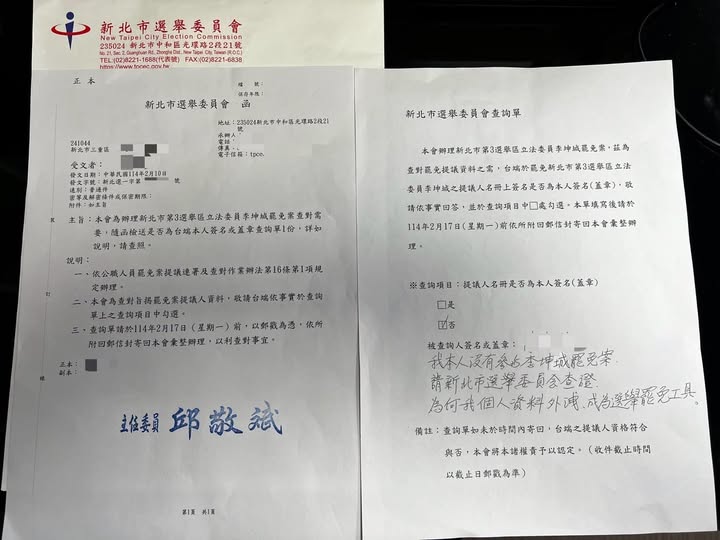 新北市選舉委員會
New Taipei City Election Commission
235024 新北市中和區光環路2段21號
No. 21, Sec. 2, Guanghuan Rd., Zhonghe Dist., New Taipei City, Taiwan (R.O.C.)
TEL:(02)8221-1688(代表號) FAX:(02)8238-6838
https://www.tpcec.gov.tw
正本
檔 號:
保存年限:
新北市選舉委員會 函
地址:235024新北市中和區光環路2段21
號
承辦人:
電話:
傳真:
電子信箱:tpce.
241044
新北市三重區
受文者:
發文日期:中華民國114年2月10日
發文字號:新北選一字第 號
速別:普通件
密等及解密條件或保密期限:
附件:如主旨
主旨:本會為辦理新北市第3選舉區立法委員李坤城罷免案查對需
要,隨函檢送是否為台端本人簽名或蓋章查詢單1份,詳如
說明,請查照。
說明:
一、依公職人員罷免案提議連署及查對作業辦法第16條第1項規
定辦理。
二、本會為查對旨揭罷免案提議人資料,敬請台端依事實於查詢
單上之查詢項目中勾選。
三、查詢單請於114年2月17日(星期一)前,以郵戳為憑,依所
附回郵信封寄回本會彙整辦理,以利查對事宜。
正本:
副本:
裝
訂
線
主任委員 邱敬斌
第1頁 共1頁
新北市選舉委員會查詢單
本會辦理新北市第3選舉區立法委員李坤城罷免案,茲為
查對罷免提議資料之需,台端於罷免新北市第3選舉區立法
委員李坤城之提議人名冊上簽名是否為本人簽名(蓋章),敬
請依事實回答,並於查詢項目中□處勾選。本單填寫後請於
114年2月17日(星期一)前依所附回郵信封寄回本會彙整辦
理。
※查詢項目:提議人名冊是否為本人簽名(蓋章)
□是
☑否
被查詢人簽名或蓋章:
我本人沒有參與李坤城罷免案.
請新北市選舉委員會查證.
為何我個人資料外洩.成為選舉罷免工具。
備註:查詢單如未於時間內寄回,台端之提議人資格符合
與否,本會將本諸權責予以認定。(收件截止時間
以截止日郵戳為準)